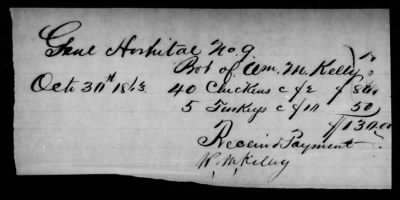 Genl Hospital No. 9
Bot of Wm. M. Kelly
Oct 30th 1863 40 Chickens c $2 $80.00
5 Turkeys c $10 50
$130.00
Received Payment
W. M. Kelly